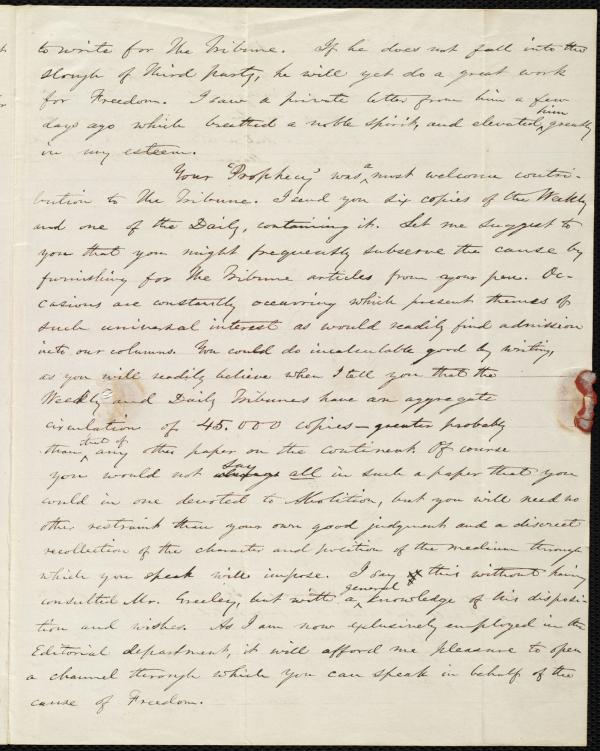 to write for The Tribune. If he does not fall into the
slough of Third party, he will yet do a great work
for Freedom. I saw a private letter from him a few
days ago which breathed a noble spirit, and elevated him greatly
in my esteem.
Your "Prophecy" was a most welcome contri-
bution to The Tribune. I send you six copies of the Weekly
and one of the Daily, containing it. Let me suggest to
you that you might frequently subserve the cause by
furnishing for The Tribune articles from your pen. Oc-
casions are constantly occurring which present themes of
such universal interest as would readily find admission
into our columns. You could do incalculable good by writing,
as you will readily believe when I tell you that the
Weekly and Daily Tribunes have an aggregate
circulation of 45.000 copies—greater probably
than that of any other paper on the continent. Of course
you would not say all in such a paper that you
could in one devoted to Abolition, but you will need no
other restraint than your own good judgment and a discreet
recollection of the character and position of the medium through
which you speak will impose. I say this without having
consulted Mr. Greeley, but with a general knowledge of his disposi-
tion and wishes. As I am now exclusively employed in the
Editorial department, it will afford me pleasure to open
a channel through which you can speak in behalf of the
cause of Freedom.